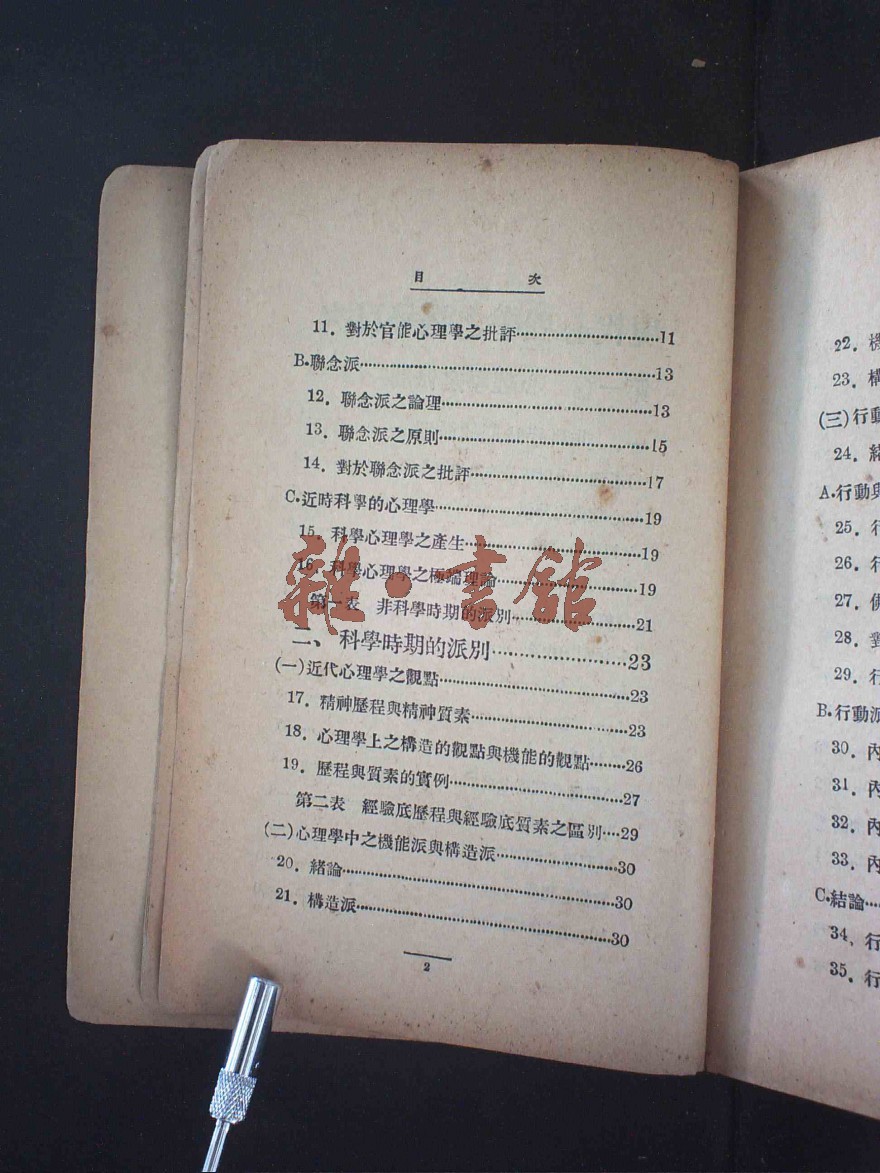 目 次
11. 對於官能心理學之批評……………………11
B.聯念派……………………13
12. 聯念派之論理……………………13
13. 聯念派之原則……………………15
14. 對於聯念派之批評……………………17
C.近時科學的心理學……………………19
15. 科學心理學之產生……………………19
16. 科學心理學之極端理論……………………19
第一表 非科學時期的派別……………………21
二、科學時期的派別……………………23
(一)近代心理學之觀點……………………23
17. 精神歷程與精神質素……………………23
18. 心理學上之構造的觀點與機能的觀點………26
19. 歷程與質素的實例……………………27
第二表 經驗底歷程與經驗底質素之區別……29
(二)心理學中之機能派與構造派……………………30
20. 緒論……………………30
21. 構造派……………………30
2
雜·書館
22. 機
23. 構
(三)行動
24. 緒
A.行動與
25. 行
26. 行
27. 佛
28. 對
29. 行
B.行動派
30. 內
31. 內
32. 內
33. 內
C.結論……
34. 行
35. 行